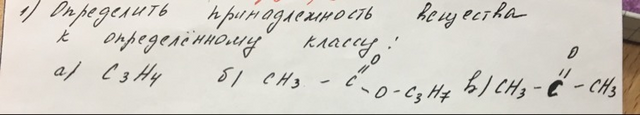 1) Определить принадлежность вещества
к определённому классу:
O
а) C3H4 б) CH3 - C =O - O - C3H7 в) CH3 - C = - CH3